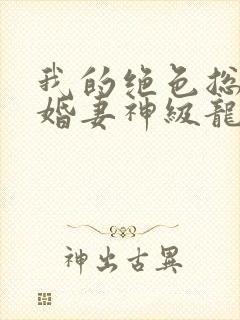 我的绝色总
婚妻神級龍
神出古異